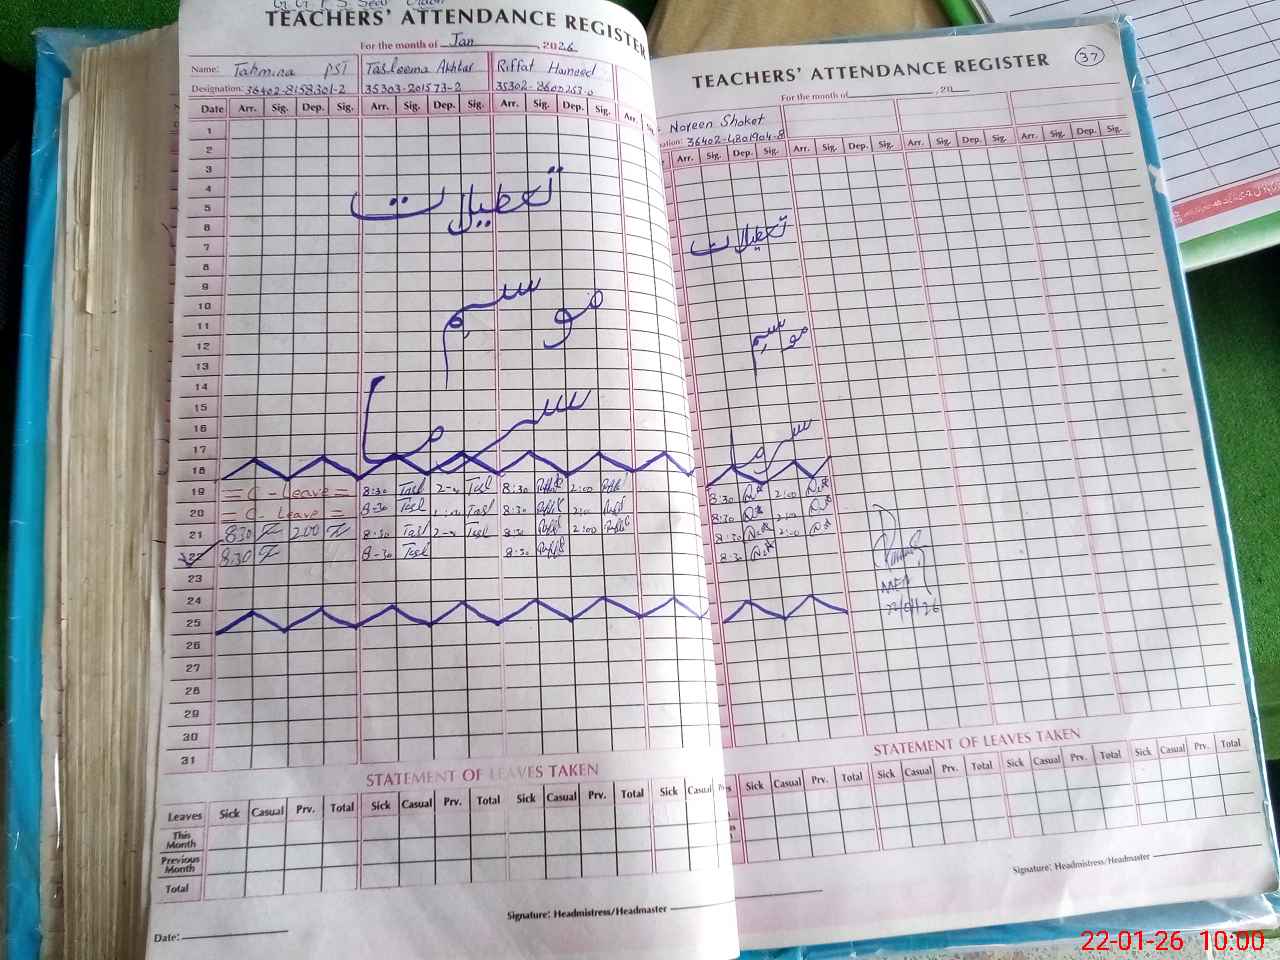 G. G. P. S.
TEACHERS' ATTENDANCE REGISTER
For the month of Jan, 2026
Name: Tahmina PST Tasleema Akhtar Riffat Hameed
Designation: 36402-8158301-2 35303-201573-2
Date Arr. Sig. Dep. Sig. Arr. Sig. Dep. Sig. Arr. Sig. Dep. Sig. Arr.
1
2
3
4
5
6
7
8
9
10
11
12
13
14
15
16
17
18
تعطیلات
موسم
سرما
19 = C - Leave = 8:30 Tasl Tasl 8:30 2:00
20 = C - Leave = 8-30 Tasl Tasl 8:30
21 8:30 200 8-30 Tasl Tasl 8:30 2:00
22 8:30 8-30 Tasl 8:30
23
24
25
26
27
28
29
30
31
STATEMENT OF LEAVES TAKEN
Leaves Sick Casual Prv. Total Sick Casual Prv. Total Sick Casual Prv. Total Sick Casual
This Month
Previous Month
Total
Signature: Headmistress/Headmaster
Date:
TEACHERS' ATTENDANCE REGISTER
37
For the month of , 20
Noreen Shoket
36402-4801904-8
Arr. Sig. Dep. Sig. Arr. Sig. Dep. Sig. Arr. Sig. Dep. Sig. Arr. Sig. Dep. Sig.
تعطیلات
موسم
سرما
8:30 2:00
8:30 2:00
8:30 2:00
8:30
STATEMENT OF LEAVES TAKEN
Sick Casual Prv. Total Sick Casual Prv. Total Sick Casual Prv. Total Sick Casual Prv. Total
Signature: Headmistress/Headmaster
22-01-26 10:00